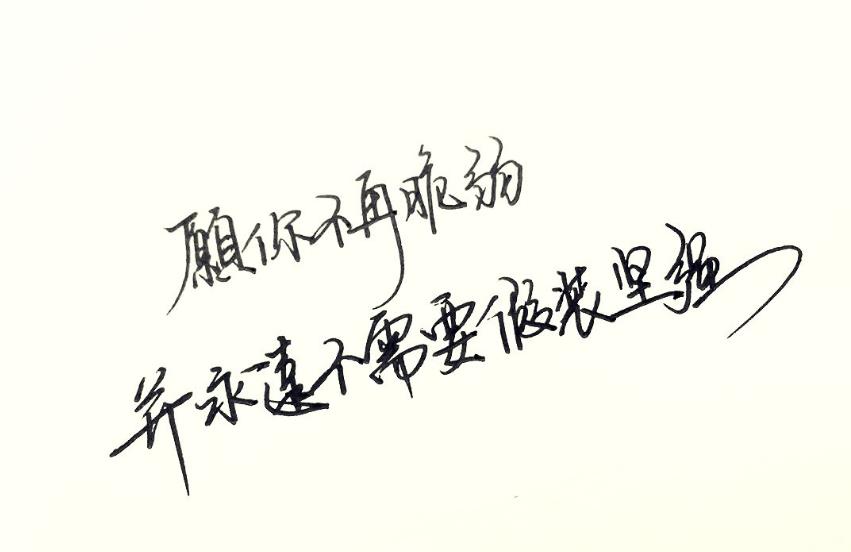 願你不再脆弱
并永遠不需要假装坚强